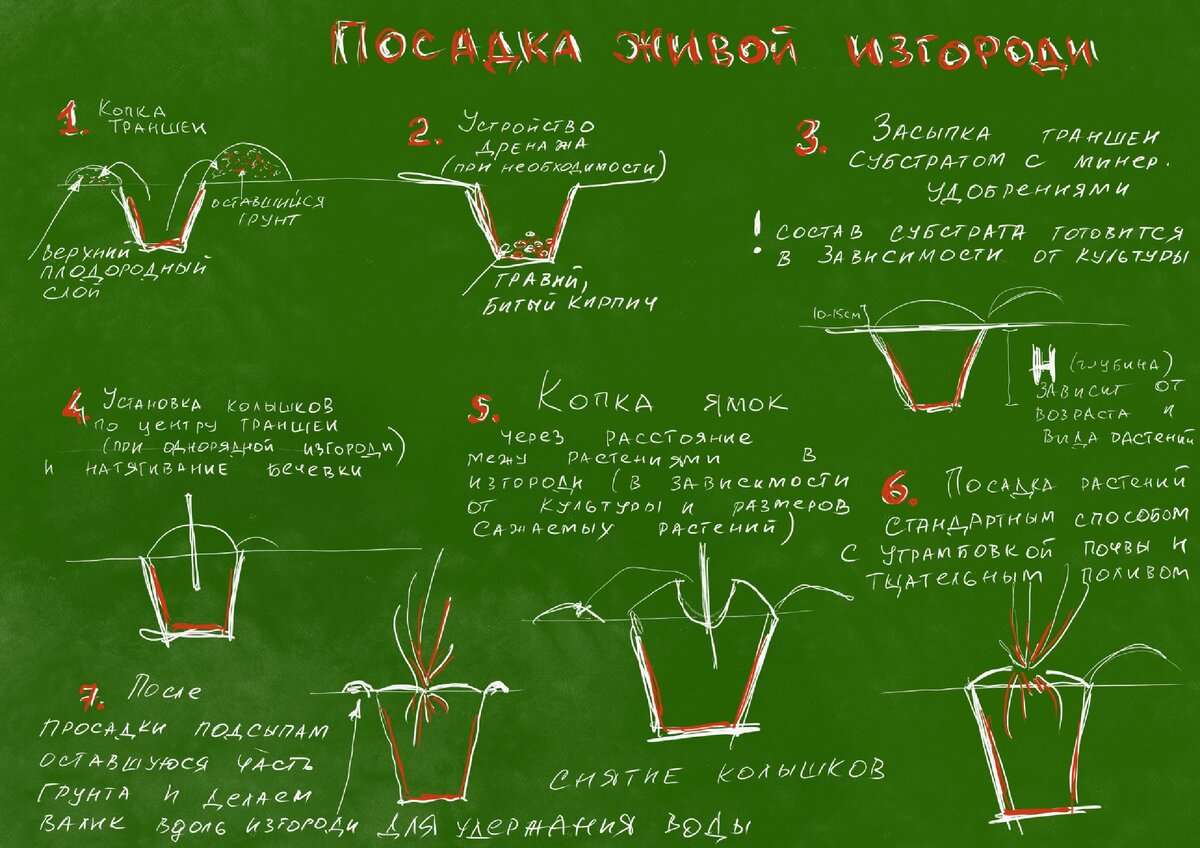 ПОСАДКА ЖИВОЙ ИЗГОРОДИ
1. КОПКА
ТРАНШЕИ
ОСТАВШИЙСЯ
ГРУНТ
ВЕРХНИЙ
ПЛОДОРОДНЫЙ
СЛОЙ
2. УСТРОЙСТВО
ДРЕНАЖА
(ПРИ НЕОБХОДИМОСТИ)
ГРАВИЙ,
БИТЫЙ КИРПИЧ
3. ЗАСЫПКА ТРАНШЕИ
СУБСТРАТОМ С МИНЕР.
УДОБРЕНИЯМИ
! СОСТАВ СУБСТРАТА ГОТОВИТСЯ
В ЗАВИСИМОСТИ ОТ КУЛЬТУРЫ
10-15см
H (ГЛУБИНА)
ЗАВИСИТ ОТ
ВОЗРАСТА И
ВИДА РАСТЕНИЙ
4. УСТАНОВКА КОЛЫШКОВ
ПО ЦЕНТРУ ТРАНШЕИ
(ПРИ ОДНОРЯДНОЙ ИЗГОРОДИ)
И НАТЯГИВАНИЕ БЕЧЕВКИ
5. КОПКА ЯМОК
ЧЕРЕЗ РАССТОЯНИЕ
МЕЖУ РАСТЕНИЯМИ В
ИЗГОРОДИ (В ЗАВИСИМОСТИ
ОТ КУЛЬТУРЫ И РАЗМЕРОВ
САЖАЕМЫХ РАСТЕНИЙ)
СНЯТИЕ КОЛЫШКОВ
6. ПОСАДКА РАСТЕНИЙ
СТАНДАРТНЫМ СПОСОБОМ
С УТРАМБОВКОЙ ПОЧВЫ И
ТЩАТЕЛЬНЫМ ПОЛИВОМ
7. ПОСЛЕ
ПРОСАДКИ ПОДСЫПАМ
ОСТАВШУЮСЯ ЧАСТЬ
ГРУНТА И ДЕЛАЕМ
ВАЛИК ВДОЛЬ ИЗГОРОДИ ДЛЯ УДЕРЖАНИЯ ВОДЫ